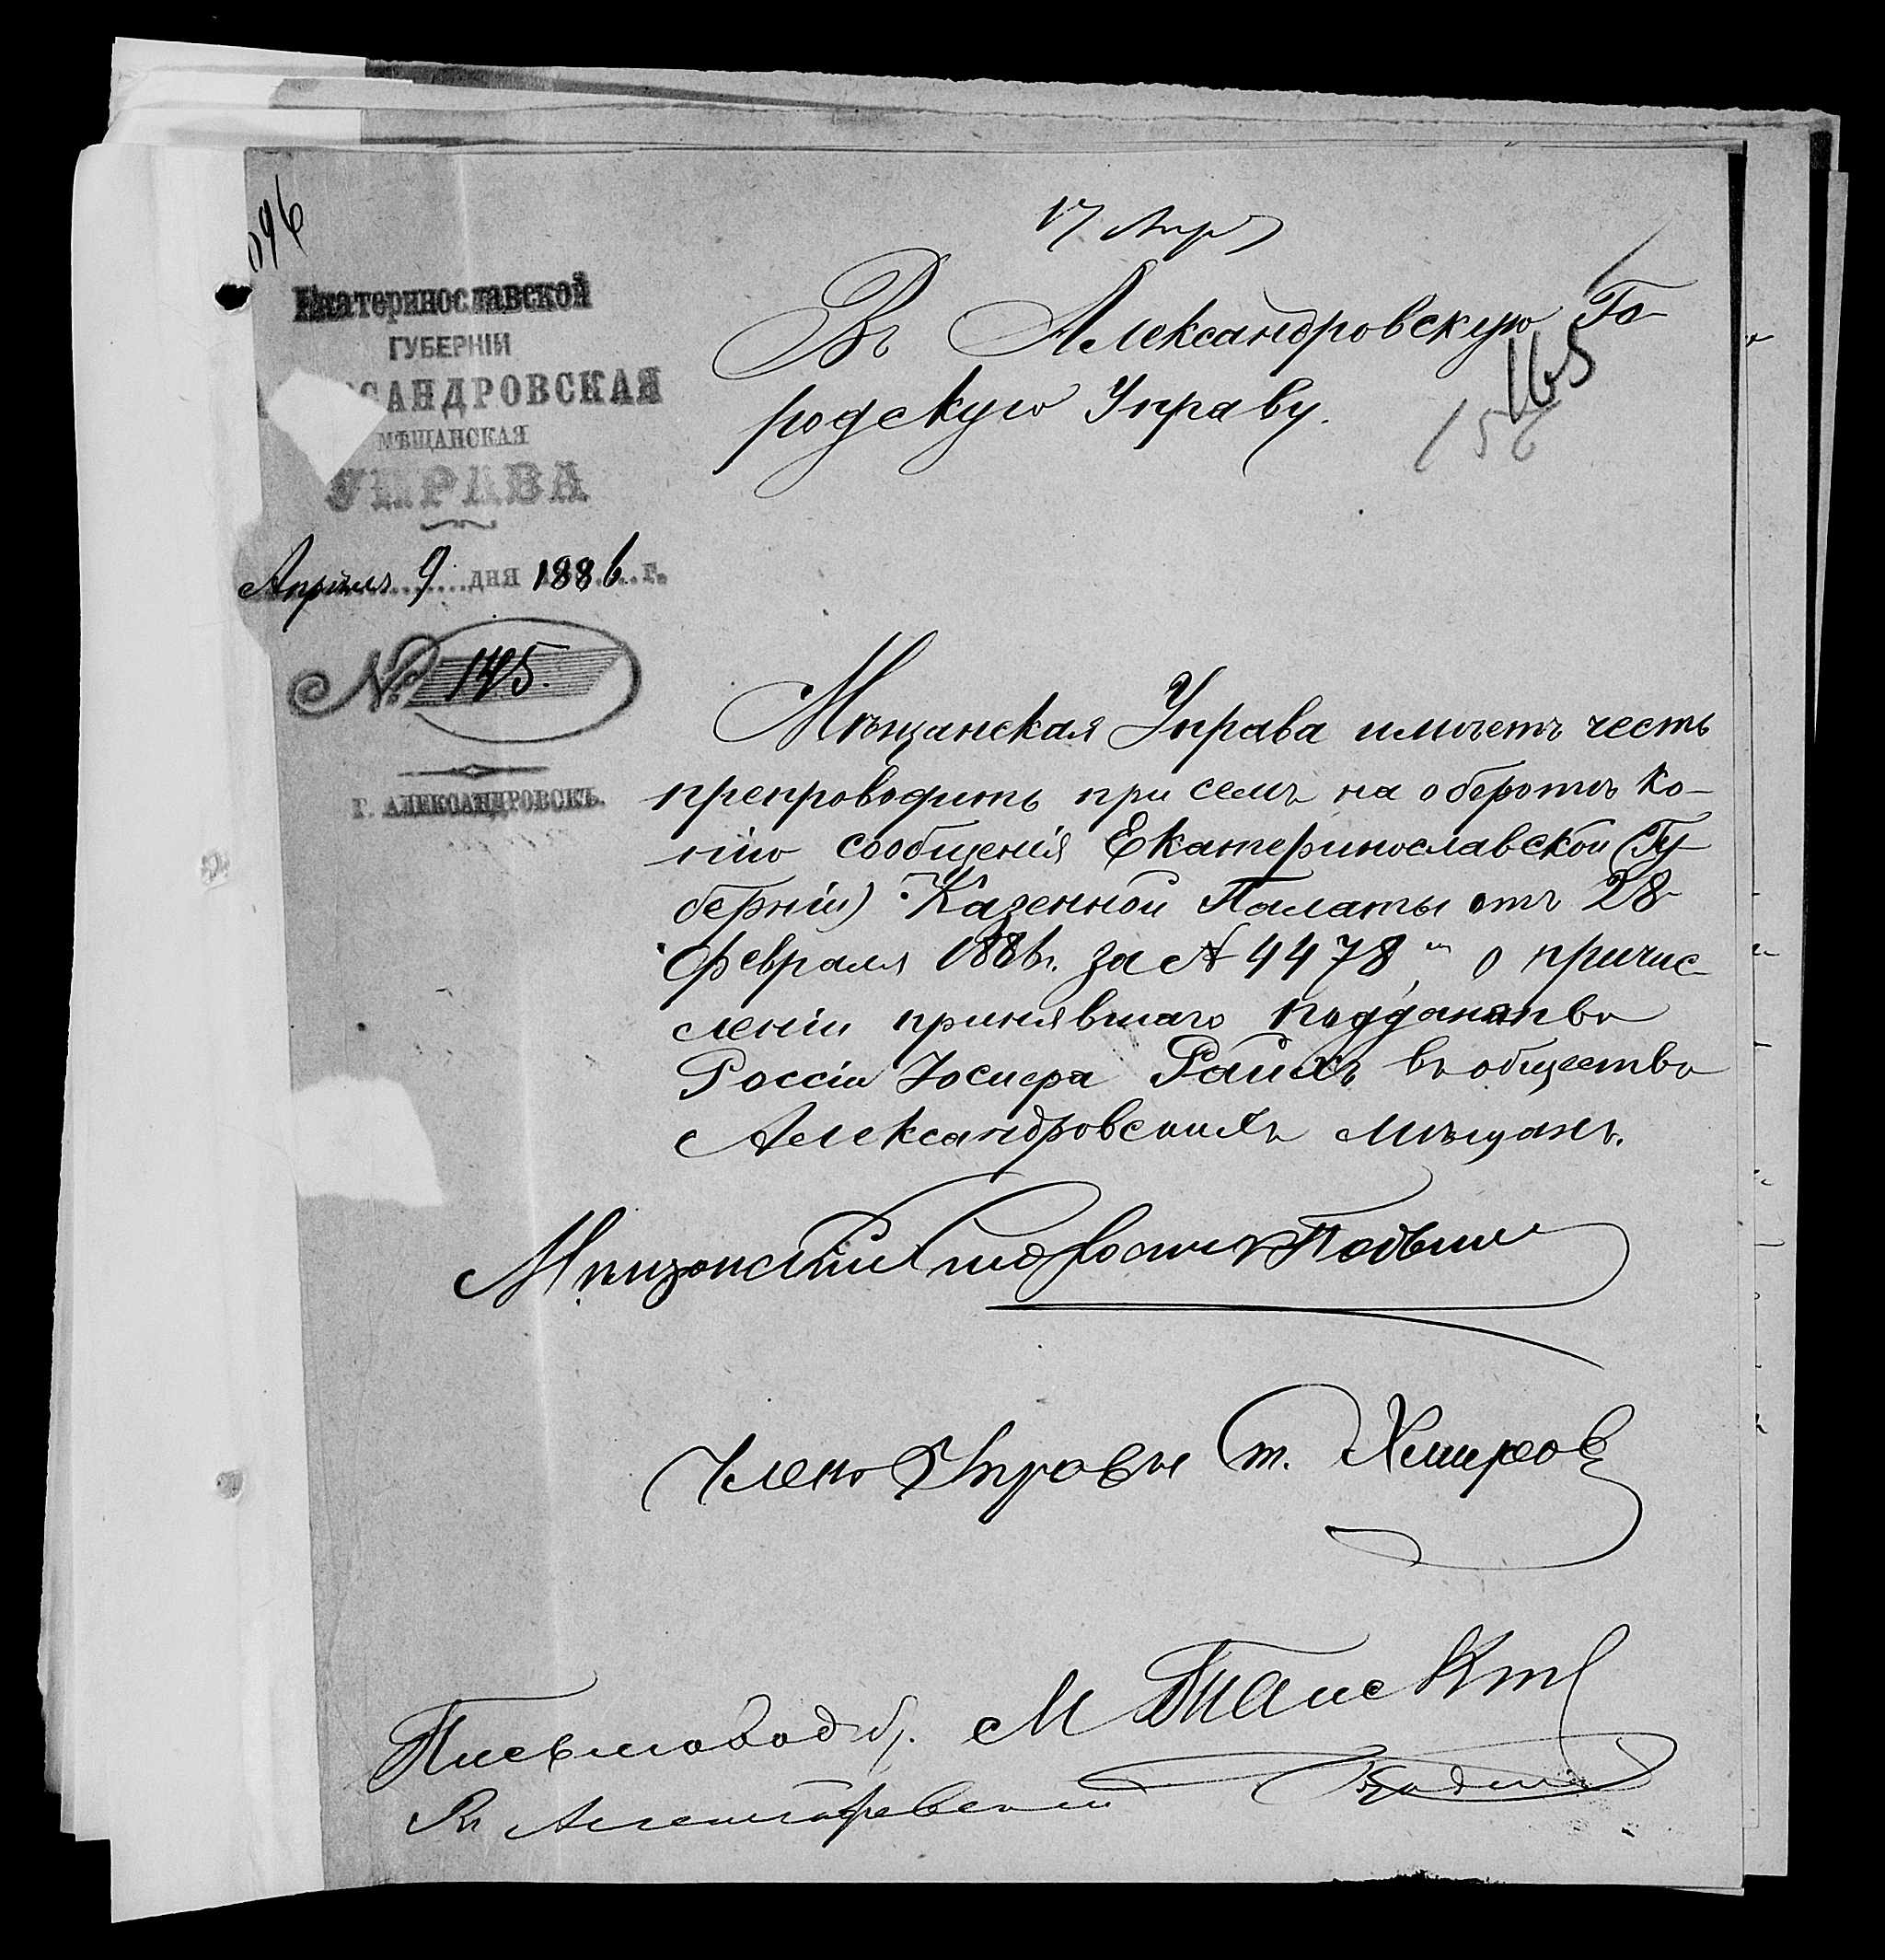 17 Апр
Екатеринославской
ГУБЕРНІИ
САНДРОВСКАЯ
МѢЩАНСКАЯ
УПРАВА
Апрѣля 9 дня 1886 г.
№ 145.
Г. АЛЕКСАНДРОВСКЪ.
Въ Александровскую Го-
родскую Управу.
165
156
Мѣщанская Управа имѣетъ честь
препроводить при семъ на оборотѣ ко-
пію сообщенія Екатеринославской (Гу-
берніи) Казенной Палаты отъ 28
февраля 1886 г. за № 4478, о причис-
леніи принявшаго подданство
Россіи Іосифа Райхъ въ общество
Александровскихъ мѣщанъ.
Мѣщанскій Староста
Членъ Управы
Письмовод.